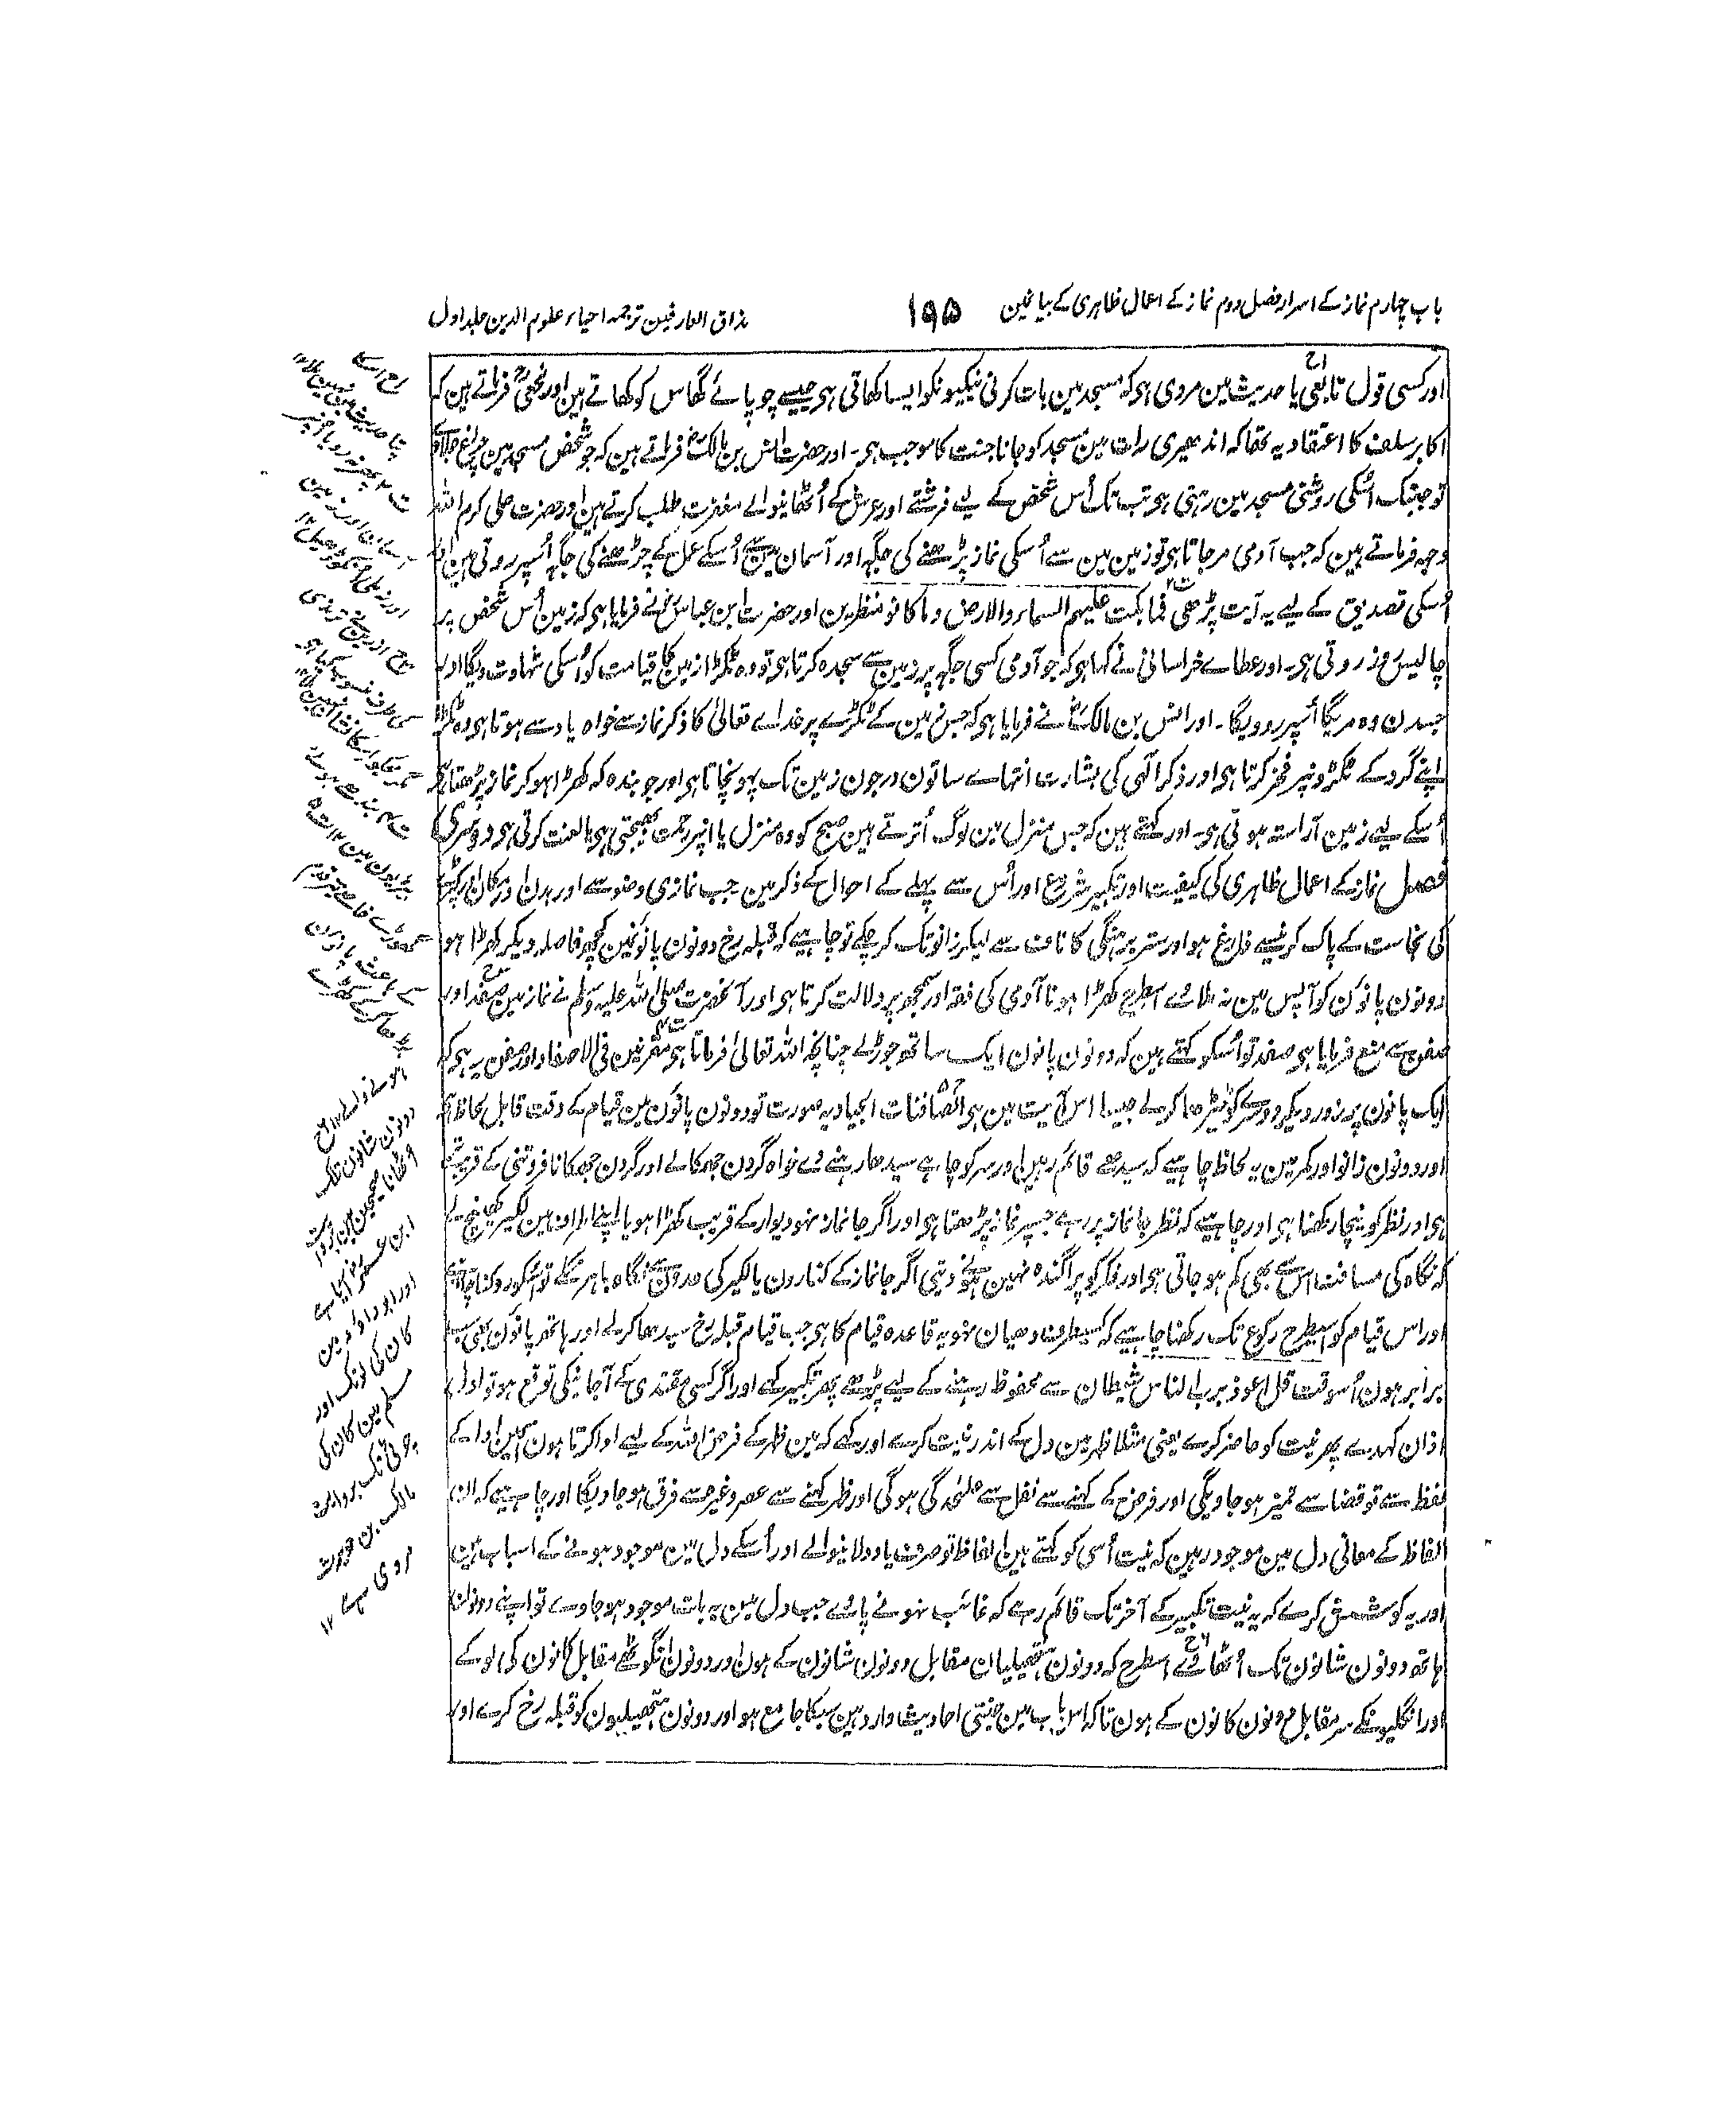 باب چہارم نماز کے اسرار فصل دوم نماز کے اعمال ظاہری کے بیانمین
۱۹۵
مذاق العارفین ترجمہ احیاء علوم الدین جلد اول
اور کسی قول تابعی یا حدیث مین مروی ہی کہ مسجد مین بات کرنی نیکیونکو ایسا کھاتی ہی جیسے چوپائے گھاس کو کھاتے ہین اور نخعی رح فرماتے ہین کہ
اکابر سلف کا اعتقاد یہ تھا کہ اندھیری رات مین مسجد کو جانا جنت کا موجب ہی۔ اور حضرت انس بن مالک رض فرماتے ہین کہ جو شخص مسجد مین چراغ جلاوے
تو جبتک اسکی روشنی مسجد مین رہتی ہی تب تک اُس شخص کے لیے فرشتے اور عرش کے اُٹھانیوالے مغفرت طلب کرتے ہین اور حضرت علی کرم اللہ
وجہہ فرماتے ہین کہ جب آدمی مرجاتا ہی تو زمین مین سے اُسکی نماز پڑھنے کی جگہہ اور آسمان مین سے اُسکے عمل کے چڑھنے کی جگہہ اُسپر روتی ہین
اُسکی تصدیق کے لیے یہ آیت پڑھی فما بکت علیہم السماء والارض وما کانو منظرین اور حضرت ابن عباس رض نے فرمایا ہی کہ زمین اُس شخص پر
چالیس روز روتی ہی۔ اور عطاے خراسانی نے کہا ہی کہ جو آدمی کسی جگہہ پر زمین سے سجدہ کرتا ہی تو وہ ٹکڑا زمین کا قیامت کو اُسکی شہادت دیگا اور
جسدن وہ مریگا اُسپر رو ویگا۔ اور انس بن مالک رض نے فرمایا ہی کہ جس زمین کے ٹکڑے پر خداے تعالیٰ کا ذکر نماز سے خواہ یاد سے ہوتا ہی وہ ٹکڑا
اپنے گرد کے ٹکڑونپر فخر کرتا ہی اور ذکر الٰہی کی بشارت انتہاے ساتون درجون زمین تک پہونچاتا ہی اور جو بندہ کہ کھڑا ہو کر نماز پڑھتا ہی
اُسکے لیے زمین آراستہ ہوتی ہی۔ اور کہتے ہین کہ جس منزل مین لوگ اُترتے ہین صبح کو وہ منزل یا انپر رحمت بھیجتی ہی یا لعنت کرتی ہی دوسری
فصل نماز کے اعمال ظاہری کی کیفیت اور تکبیر شروع اور اُس سے پہلے کے احوال کے ذکر مین۔ جب نمازی وضو سے اور بدن اور مکان اور کپڑے
کی نجاست کے پاک کرنیسے فارغ ہو اور ستر برہنگی کا ناف سے لیکر زانو تک کر چکے تو چاہیے کہ قبلہ رخ دونون پانوُنمین کچھ فاصلہ دیکر کھڑا ہو
دونون پانوُن کو آپس مین نہ ملاوے اسطرح کھڑا ہونا آدمی کی فقہ اور سمجھ پر دلالت کرتا ہی اور آنحضرت صلی اللہ علیہ وسلم نے نماز مین صفد اور
صفن سے منع فرمایا ہی صفد تو اُسکو کہتے ہین کہ دونون پانون ایک ساتھ جوڑلے چنانچہ اللہ تعالیٰ فرماتا ہی مقرنین فی الاصفاد اور صفن یہ ہی کہ
ایک پانون پر زور دیکر دوسرے کو ٹیڑھا کرلے جیسا اس آیت مین ہی الصافنات الجیاد یہ صورت تو دونون پانوُن مین قیام کے وقت قابل لحاظ ہی
اور دونون زانو اور کمر مین یہ لحاظ چاہیے کہ سیدھے قائم رہین اور سر کو چاہے سیدھا رہنے دے خواہ گردن جھکالے اور گردن جھکانا فروتنی کے قریب
ہی اور نظر کو نیچا رکھنا ہی اور چاہیے کہ نظر جانماز پر رہے جسپر نماز پڑھتا ہی اور اگر جانماز نہو دیوار کے قریب کھڑا ہو یا اپنے اطراف مین لکیر کھینچ لے
کہ نگاہ کی مسافت اس سے بھی کم ہو جاتی ہی اور فکر کو پراگندہ نہین ہونے دیتی اگر جانماز کے کنارون یا لکیر کی حدون سے نگاہ باہر نکلے تو اُسکو روکنا چاہیے
اور اس قیام کو اسیطرح رکوع تک رکھنا چاہیے کہ کسیطرف دھیان نہو یہ قاعدہ قیام کا ہی جب قیام قبلہ رخ سیدھا کرلے اور ہاتھ پانوُن بھی سب
برابر ہون اُسوقت قل اعوذ برب الناس شیطان سے محفوظ رہنے کے لیے پڑھے پھر تکبیر کہے اور اگر کسی مقتدی کے آجانیکی توقع ہو تو اول
اذان کہدے پھر نیت کو حاضر کرے یعنی مثلا ظہر مین دل کے اندر نیت کرے اور کہے کہ مین ظہر کے فرض اللہ کے لیے ادا کرتا ہون اسمین ادا کے
لفظ سے تو قضا سے تمیز ہو جاویگی اور فرض کے کہنے سے نفل سے علٰحدگی ہوگی اور ظہر کہنے سے عصر وغیرہ سے فرق ہو جاویگا اور چاہیے کہ ان
الفاظ کے معانی دل مین موجود رہین کہ نیت اُسی کو کہتے ہین الفاظ تو صرف یاد دلانیوالے اور اُسکے دل مین موجود ہونے کے اسباب ہین
اور یہ کوشش کرے کہ یہ نیت تکبیر کے آخر تک قائم رہے کہ غائب نہونے پاوے جب دل مین یہ بات موجود ہو جاوے تو اپنے دونون
ہاتھ دونون شانون تک اُٹھاوے اسطرح کہ دونون ہتھیلیان مقابل دونون شانون کے ہون اور دونون انگوٹھے مقابل کانون کی لو کے
اور انگلیونکے سر مقابل دونون کانون کے ہون تاکہ اس باب مین جتنی احادیث وارد ہین سبکا جامع ہو اور دونون ہتھیلیون کو قبلہ رخ کرے اور
ہونے والے ۱۲
دونون شانون تک
اُٹھانا صحیحین مین بروایت
ابن عمر رض آیا ہے
اور ابو داؤد مین
کان کی لو تک اور
مسلم مین کان کی
چوٹی تک بروایت
مالک بن حویرث
مروی ہے ۱۲